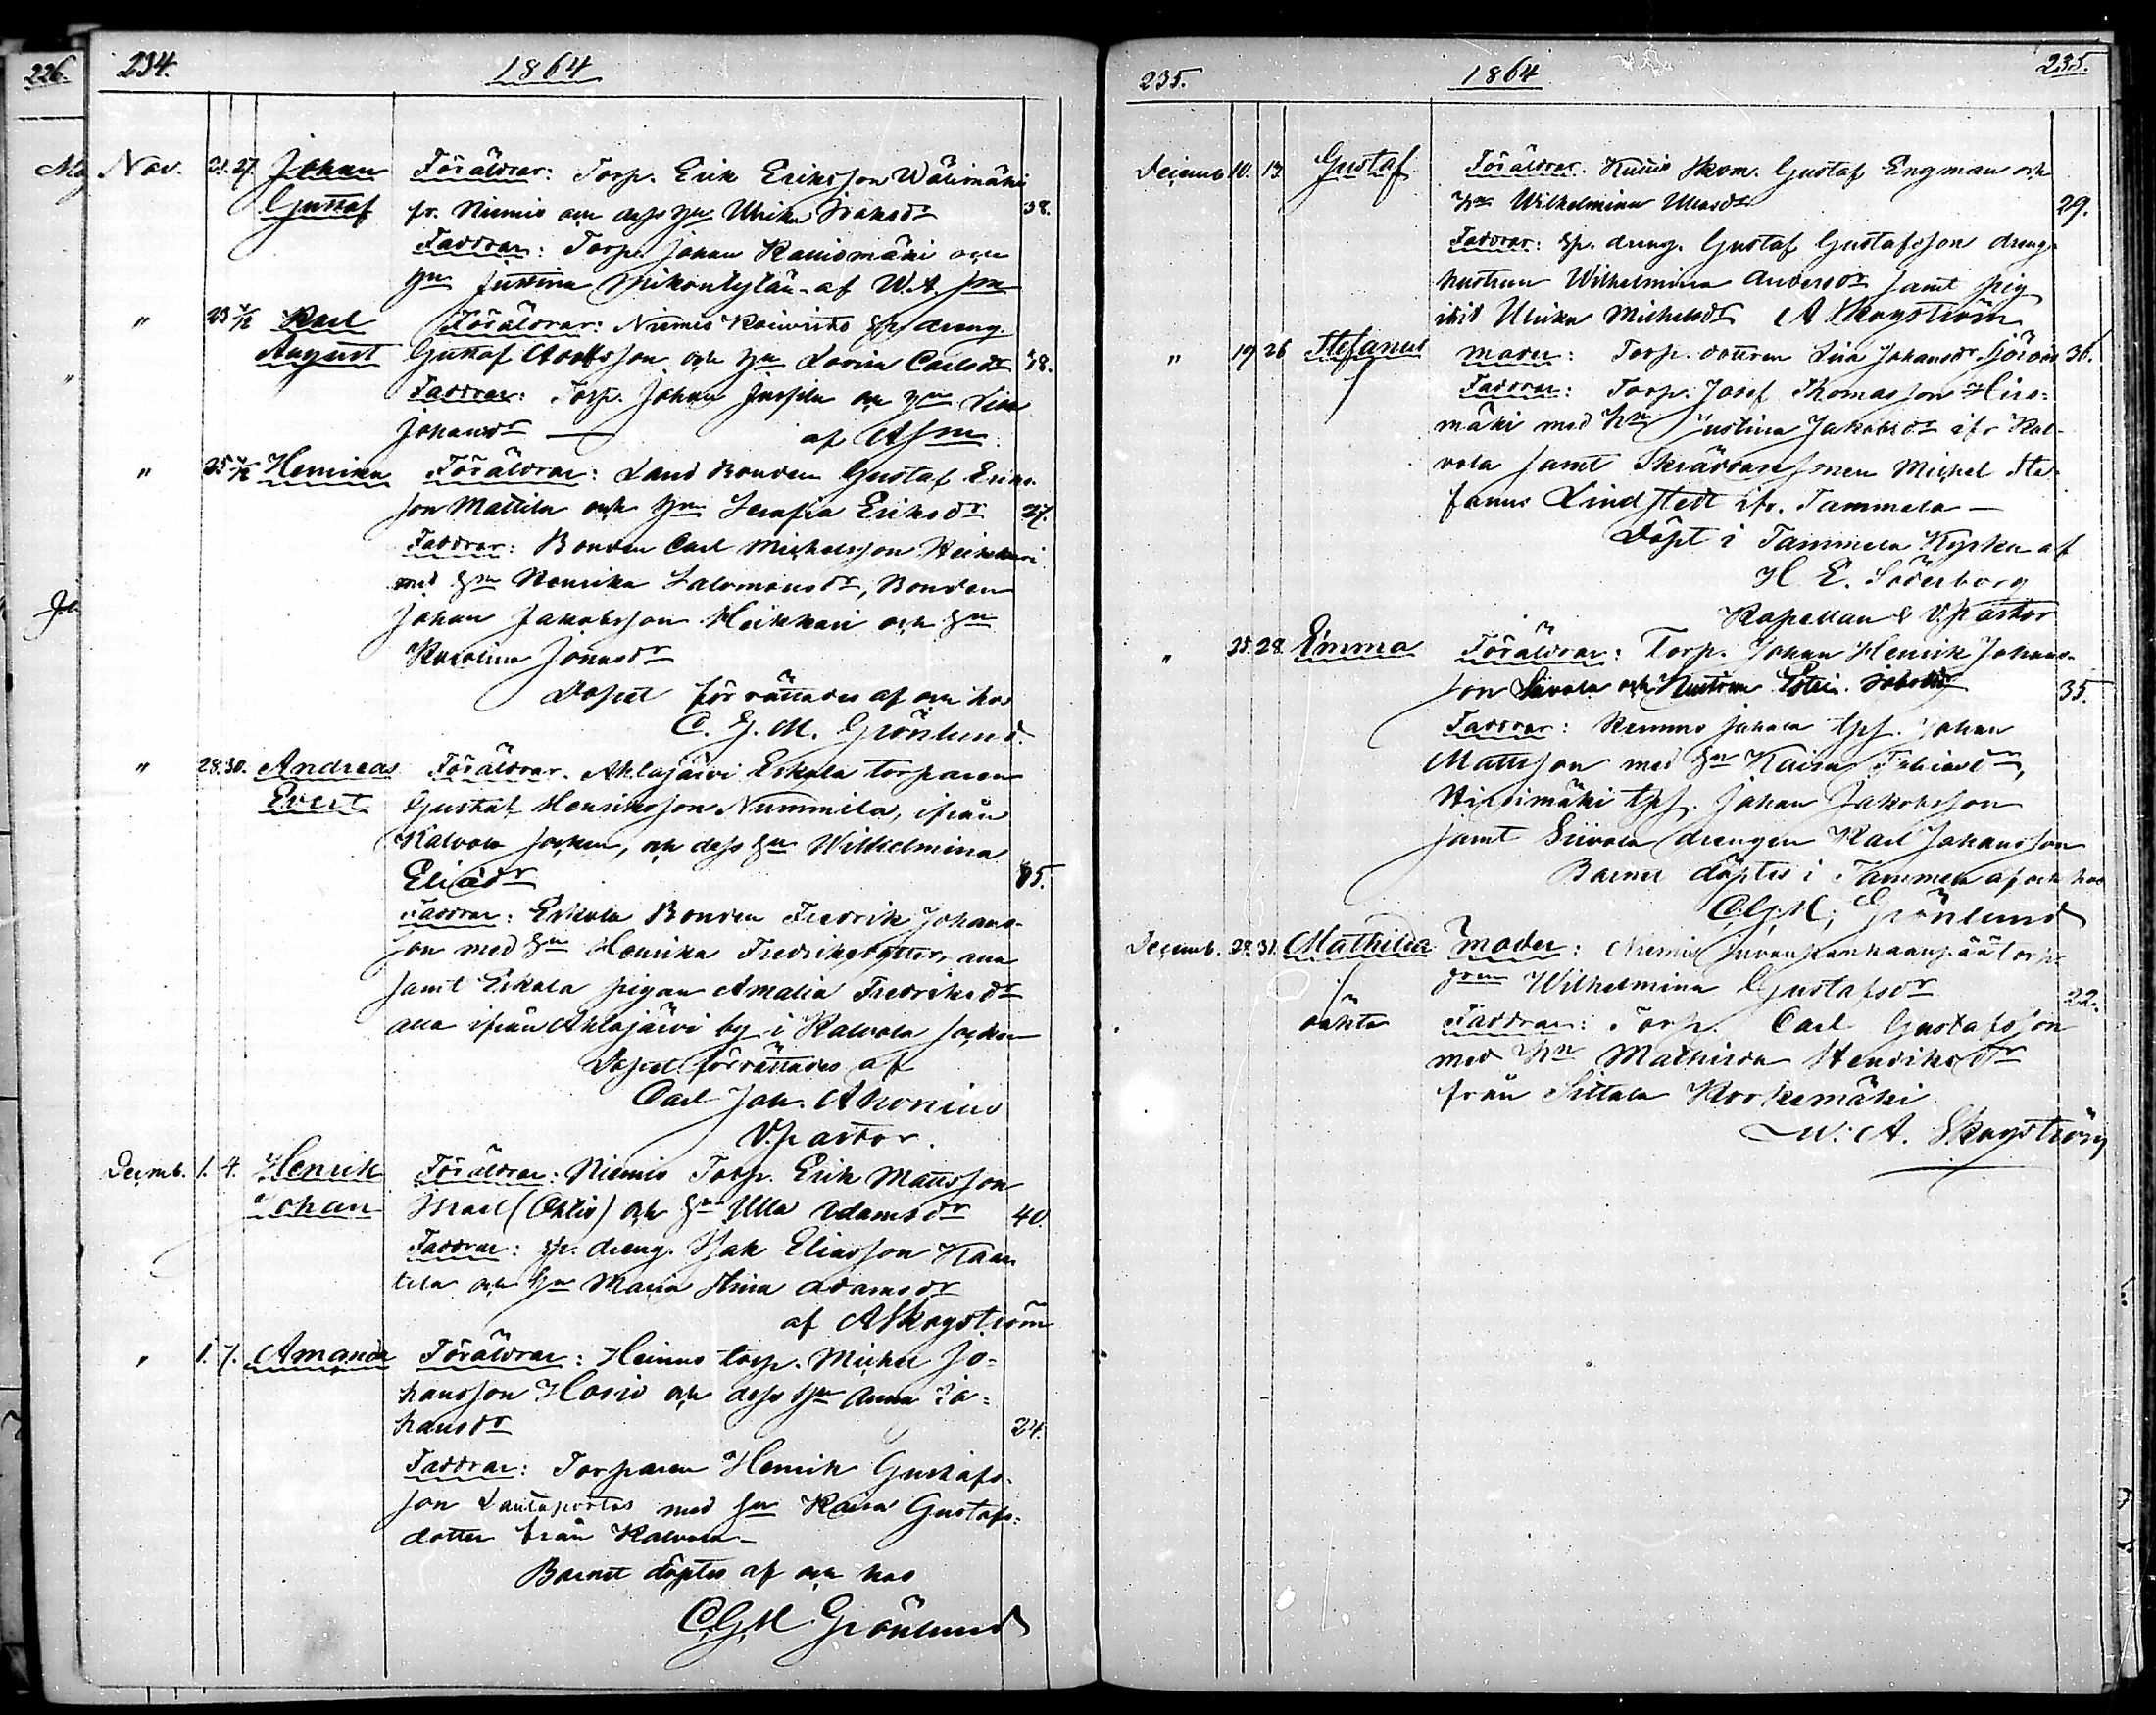 226.
234.
1864
Nov. 21. 27. Johan Föräldrar: Torp. Erik Eriksson Wälimäki
Gustaf fr. Niemis och dess hu Ulrika Isaksdr 38.
Faddrar: Torp. Johan Rauismäki och
hu Justina af W. A. Sm
" 23 4/12 Karl Föräldrar: Niemis dreng.
August Gustaf Adolfsson och hu Lovisa Carlsdr 38.
Faddrar: Torp. Johan Jussila och hu Lisa
Johansdr — af ASm
" 25 4/12 Henrika Föräldrar: Land Bonden Gustaf Eriks-
son Mattila och hu Serafia Eriksdr 27.
Faddrar: Bonden Carl Michelsson Heikkari
med hu Henrika Salomonsdr, Bonden
Johan Jakobsson Heikkari och hu
Karolina Jonasdr
Dopet förrättades af och hos
C. G. M. Grönlund.
" 28. 30. Andreas Föräldrar. Ahlajärvi Eskola torparen
Evert Gustaf Henriksson Nummila, ifrån
Kalvola socken, och dess hu Wilhelmina
Eliædr 35.
Faddrar: Eskola Bonden Fredrik Johans-
son med hu Henrika Fredriksdotter, ana
samt Eskola pigan Amalia Fredriksdr
alla ifrån Ahlajärvi by i Kalvola socken
Dopet förrättades af
Carl Joh. Ahonius
V.pastor.
Decmb. 1. 4. Henrik Föräldrar: Niemis Torp. Erik Mattsson
Johan och hu Ulla Adamsdr 40.
Faddrar: dreng. Isak Eliasson Kaan
tela och hu Maria Stina Adamsdr
af ASkogström
" 1. 7. Amanda Föräldrar: Heinus torp. Michel Jo-
hansson Horis och dess hu Anna Jo-
hansdr 24.
Faddrar: Torparen Henrik Gustafs-
son Lautaportas med hu Kaisa Gustafs-
dotter från Kalvola—
Barnet döptes af och hos
C,G,M Grönlund
235.
1864
235.
Decemb 10. 13 Gustaf Föräldrar. Skom. Gustaf Engman och
hu Wilhelmina 29.
Faddrar: dreng. Gustaf Gustafsson dreng
hustrun Wilhelmina Andersdr samt pig
ibid Ulrika Michelsdr A Skogström
" 19 26 Stefanus Moder: Torp. dottren Lisa Johansdr 36.
Faddrar: Torp. Josef Thomasson Hirs-
mäki med hu Justina Jakobsdr ifr Kal-
vola samt Skräddaresonen Michel Ste-
fanus Lindstedt ifr. Tammela —
Döpt i Tammela Kyrka af
H. E. Söderborg
Kapellan & V.pastor
" 25. 28. Emma Föräldrar: Torp. Johan Henrik Johans-
son Siivola och Hustrun 35.
Faddrar: Johan
Mattsson med hu Kaisa
Hirsimäki Johan Jakobsson
samt Siivola drengen Karl Johansson
Barnet döptes i Tammela af och hos
C.G.M, Grönlund
Decemb. 28. 31. Mathilda Moder: Niemis
Wilhelmina Gustafsdr 22.
oäkta Faddrar: Torp. Carl Gustafsson
med hu Mathilda Henriksdr
från Sittala Korkemäki
W. A. Skogström